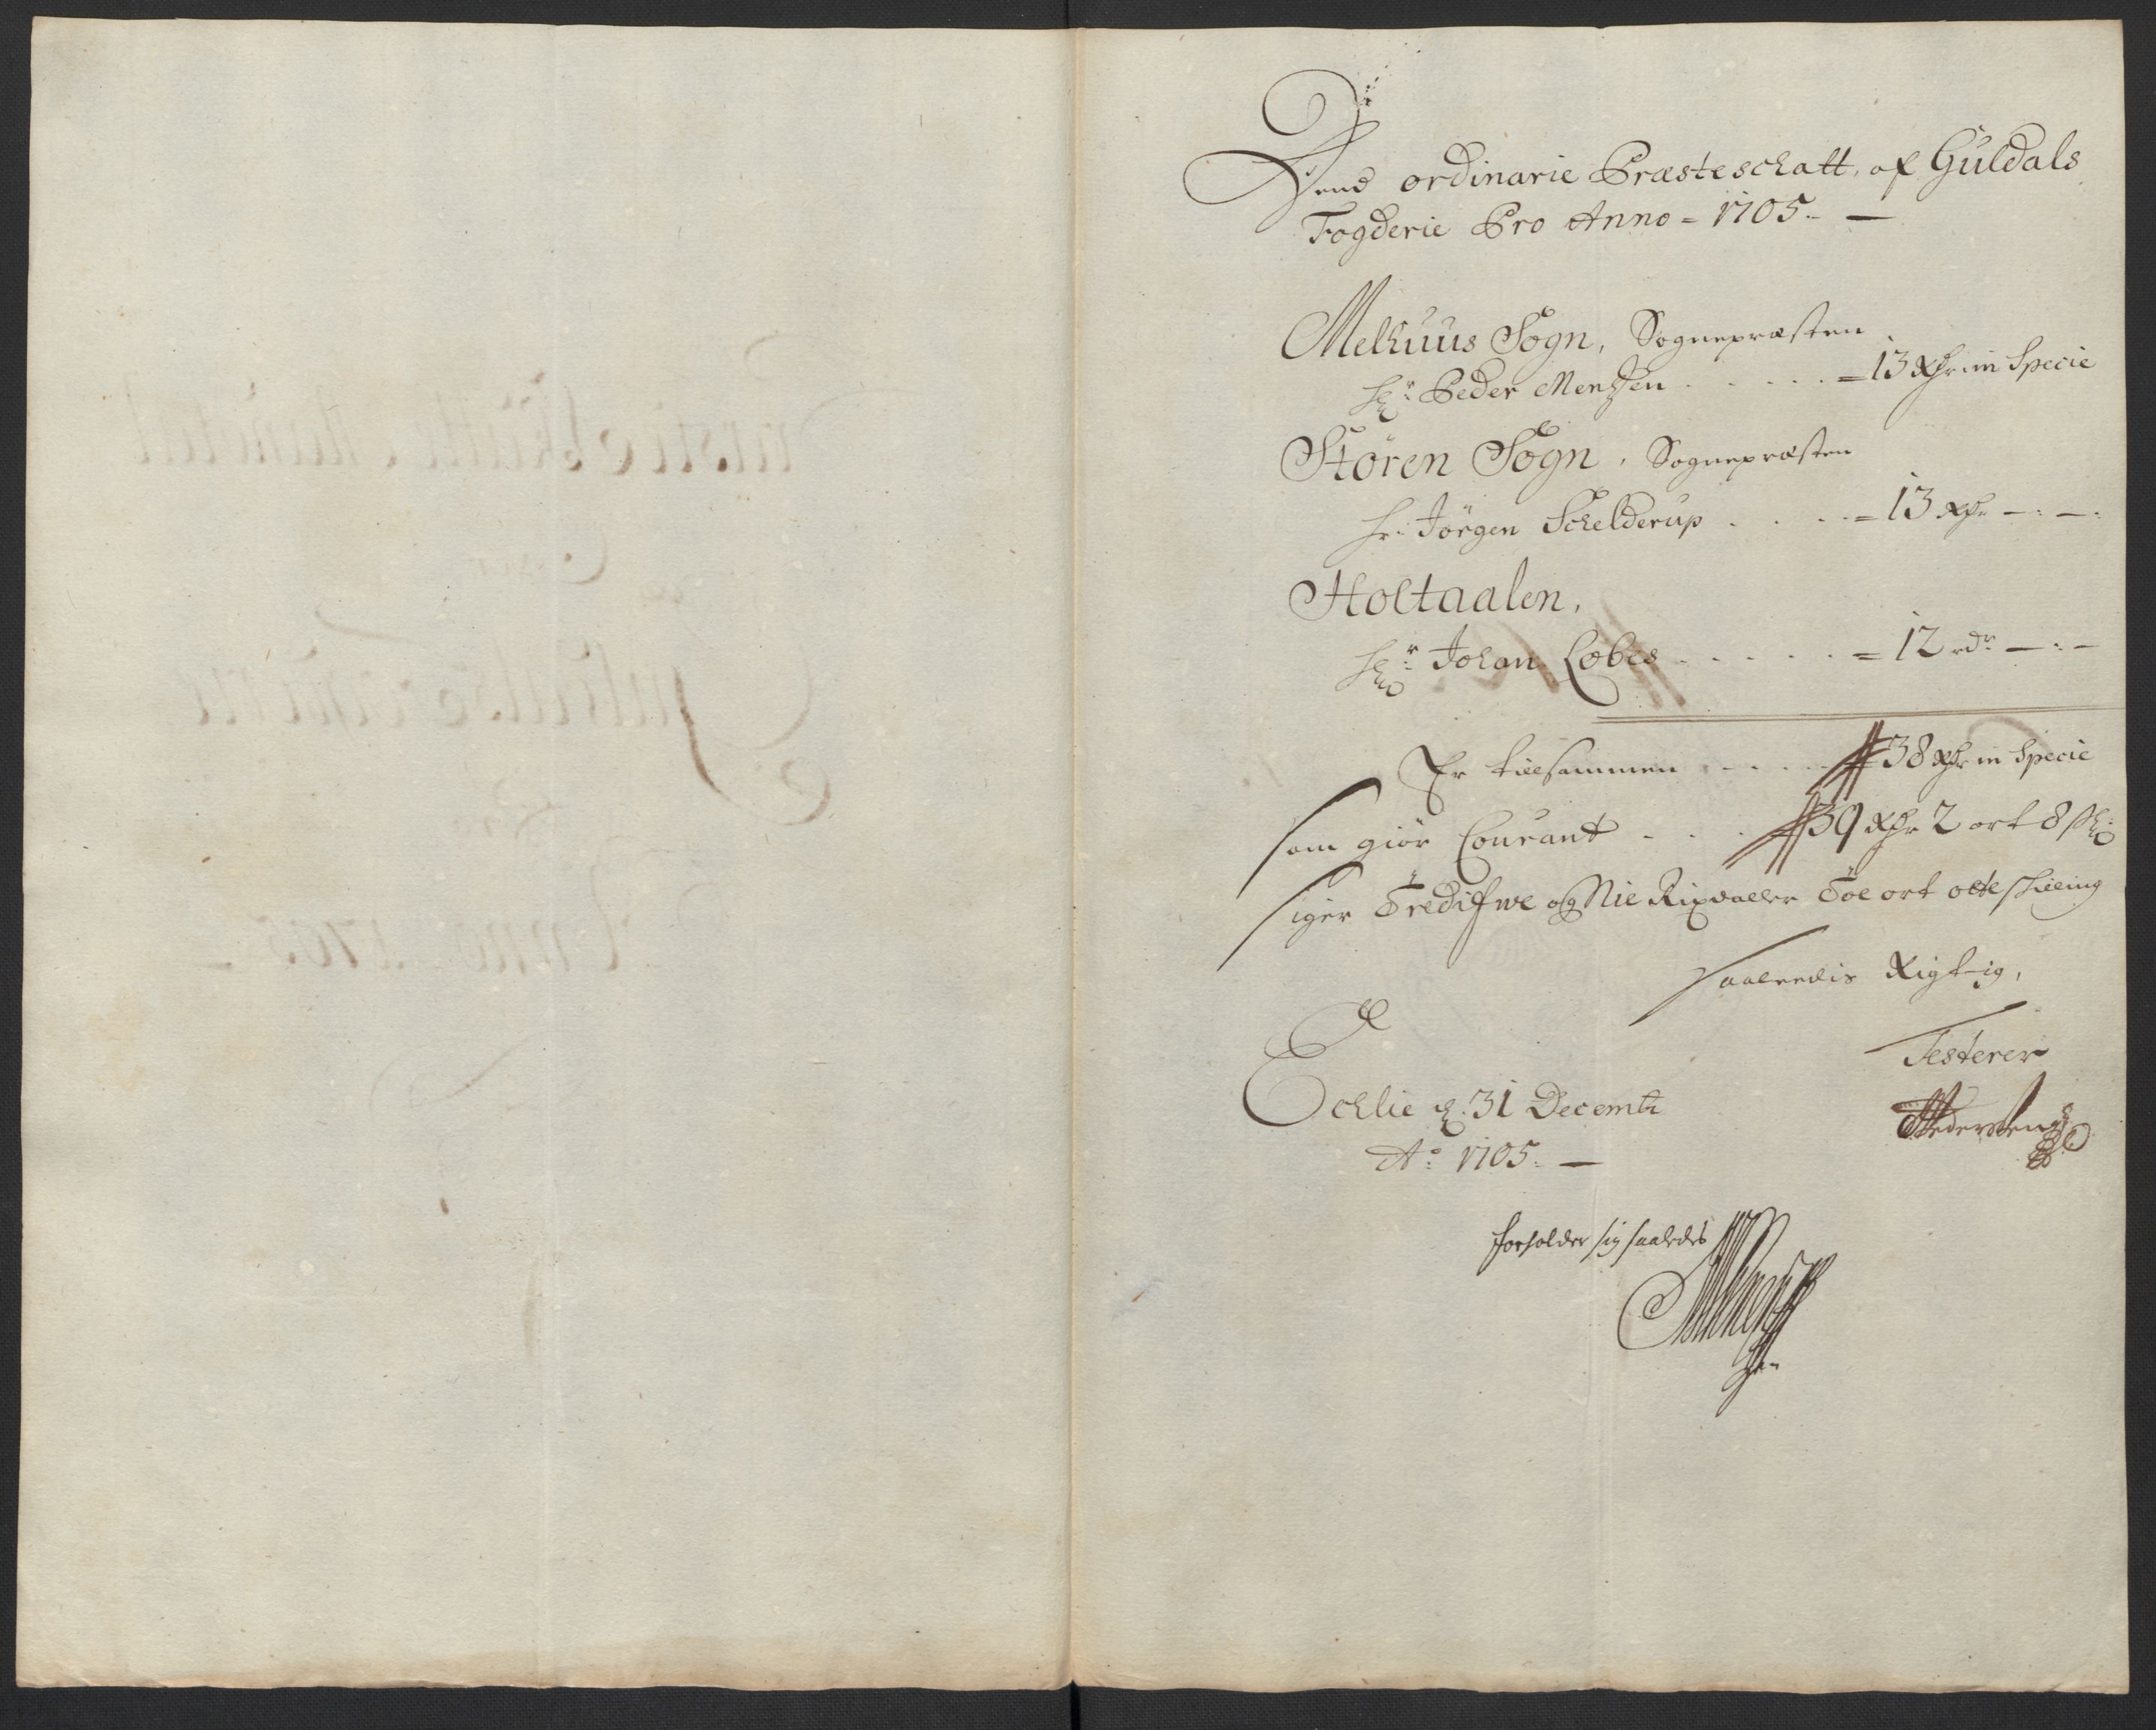 Dend ordinarie Præsteschatt, af Guldals
Fogderie Pro Anno = 1705. —
Melhuus Sogn, Sognepræsten
Hr: Peder Mentzen . . . . . = 13 Rdr in Specie
Stören Sogn, Sognepræsten
Hr: Jörgen Schelderup . . . . = 13 Rdr — : — :
Holtaalen,
Hr: Johan Cobes . . . . . = 12 rdr — : —
Er tillsammen . . . . 38 Rdr in Specie
som giör Courant . . . 39 Rdr 2 ort 8 sk:
siger Tredifwe og Nie Rixdaller Toe ort otte schilling
saaledis Rigtig,
Testerer
Echlie d: 31 Decembr
Ao: 1705. —
forholder sig saaledes